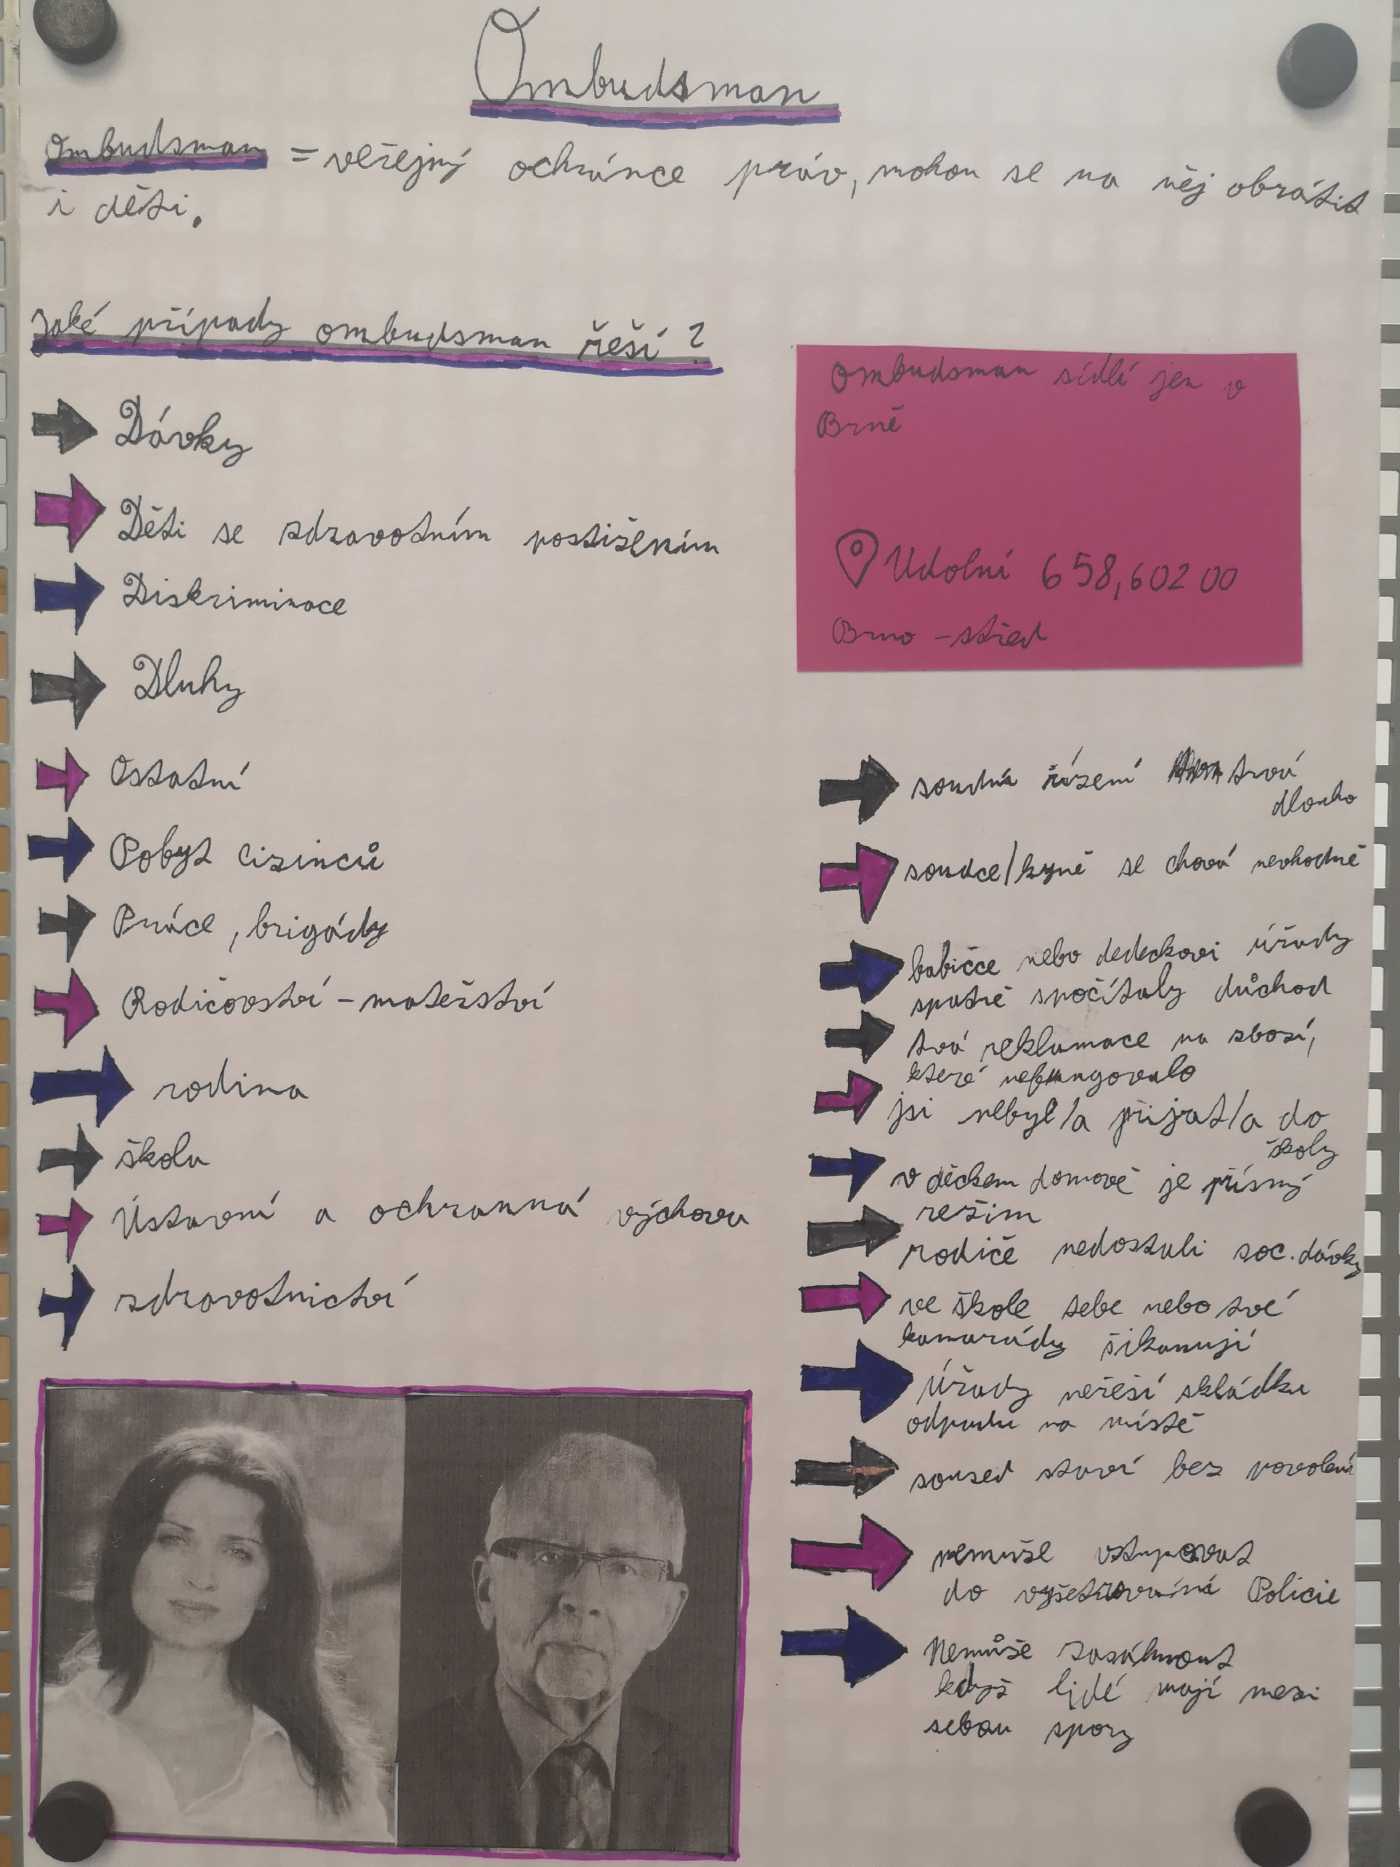 Ombudsman
Ombudsman = veřejný ochránce práv, mohou se na něj obrátit
i děti.
Jaké případy ombudsman řeší?
Dávky
Děti se zdravotním postižením
Diskriminace
Dluhy
Ostatní
Pobyt cizinců
Práce, brigády
Rodičovství - mateřství
rodina
škola
Ústavní a ochranná výchova
zdravotnictví
Ombudsman sídlí jen v
Brně
Údolní 658, 602 00
Brno - střed
soudní řízení trvá
dlouho
soudce/kyně se chová nevhodně
babičce nebo dědečkovi úřady
špatně spočítaly důchod
tvá reklamace na zboží,
které nefungovalo
jsi nebyl/a přijat/a do
školy
v děckem domově je přísný
režim
rodiče nedostali soc. dávky
ve škole tebe nebo tvé
kamarády šikanují
Úřady neřeší skládku
odpadu na místě
soused staví bez povolení
nemůže vstupovat
do vyšetřování Policie
Nemůže zasáhnout
když lidé mají mezi
sebou spory